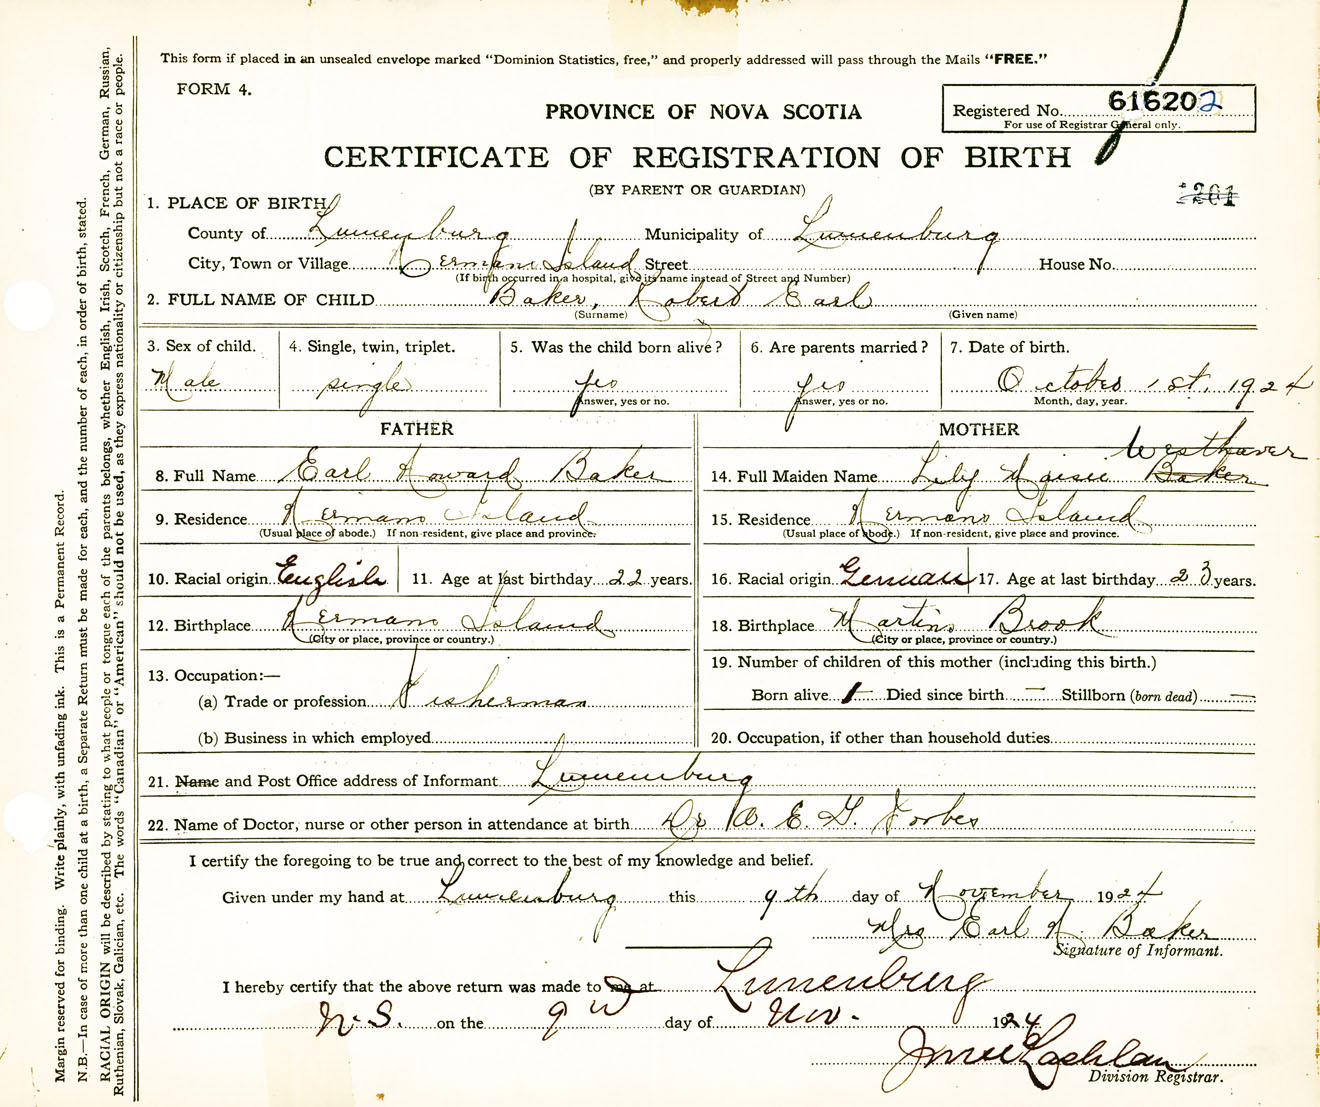 This form if placed in an unsealed envelope marked "Dominion Statistics, free," and properly addressed will pass through the Mails "FREE."
FORM 4.
Registered No. 616202
For use of Registrar General only.
PROVINCE OF NOVA SCOTIA
CERTIFICATE OF REGISTRATION OF BIRTH
(BY PARENT OR GUARDIAN)
1201
1. PLACE OF BIRTH
County of Lunenburg Municipality of Lunenburg
City, Town or Village Hermans Island Street House No.
(If birth occurred in a hospital, give its name instead of Street and Number)
2. FULL NAME OF CHILD Baker, Robert Earl
(Surname) (Given name)
3. Sex of child. 4. Single, twin, triplet. 5. Was the child born alive? 6. Are parents married? 7. Date of birth.
Male single yes yes October 1st, 1924
Answer, yes or no. Answer, yes or no. Month, day, year.
FATHER MOTHER
Westhaver
8. Full Name Earl Howard Baker 14. Full Maiden Name Lily Maisie Baker
9. Residence Hermans Island 15. Residence Hermans Island
(Usual place of abode.) If non-resident, give place and province. (Usual place of abode.) If non-resident, give place and province.
10. Racial origin English 11. Age at last birthday 22 years. 16. Racial origin German 17. Age at last birthday 23 years.
12. Birthplace Hermans Island 18. Birthplace Martins Brook
(City or place, province or country.) (City or place, province or country.)
13. Occupation:— 19. Number of children of this mother (including this birth.)
(a) Trade or profession Fisherman Born alive 1 Died since birth — Stillborn (born dead) —
(b) Business in which employed 20. Occupation, if other than household duties
21. Name and Post Office address of Informant Lunenburg
22. Name of Doctor, nurse or other person in attendance at birth Dr E. G. Forbes
I certify the foregoing to be true and correct to the best of my knowledge and belief.
Given under my hand at Lunenburg this 9th day of November 1924
Mrs Earl H. Baker
Signature of Informant.
I hereby certify that the above return was made to me at Lunenburg
N.S. on the 9 day of Nov. 1924
Division Registrar.
Margin reserved for binding. Write plainly, with unfading ink. This is a Permanent Record.
N.B.—In case of more than one child at a birth, a Separate Return must be made for each, and the number of each, in order of birth, stated.
RACIAL ORIGIN will be described by stating to what people or tongue each of the parents belongs, whether English, Irish, Scotch, French, German, Russian,
Ruthenian, Slovak, Galician, etc. The words "Canadian" or "American" should not be used, as they express nationality or citizenship but not a race or people.